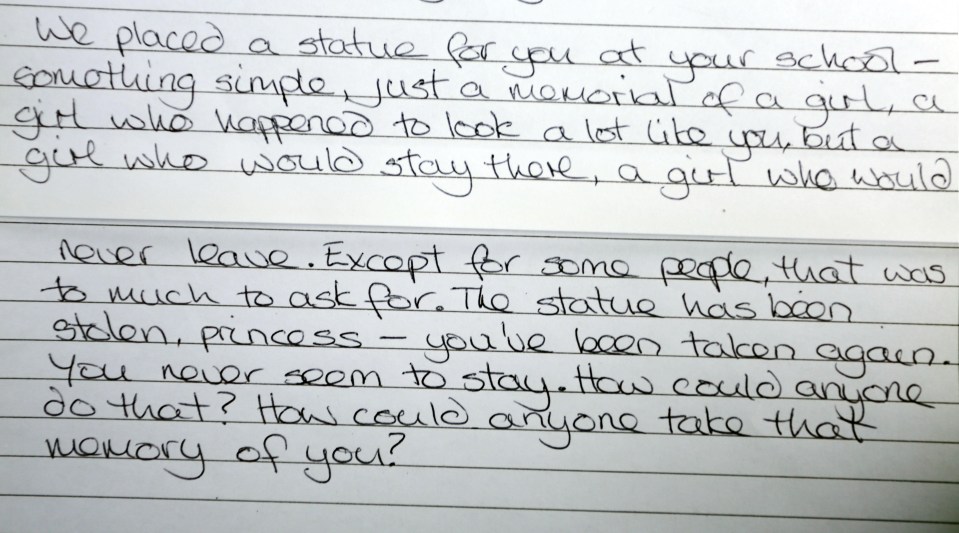 We placed a statue for you at your school –
something simple, just a memorial of a girl, a
girl who happened to look a lot like you, but a
girl who would stay there, a girl who would
never leave. Except for some people, that was
to much to ask for. The statue has been
stolen, princess – you've been taken again.
You never seem to stay. How could anyone
do that? How could anyone take that
memory of you?